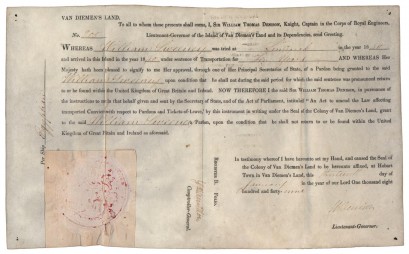 VAN DIEMEN'S LAND.
To all to whom these presents shall come, I, SIR WILLIAM THOMAS DENISON, Knight, Captain in the Corps of Royal Engineers,
No.
Lieutenant-Governor of the Island of Van Diemen's Land and its Dependencies, send Greeting.
WHEREAS William was tried at in the year 18
and arrived in this Island in the year 18 under sentence of Transportation for AND WHEREAS Her
Majesty hath been pleased to signify to me Her approval, through one of Her Principal Secretaries of State, of a Pardon being granted to the said
William upon condition that he shall not during the period for which the said sentence was pronounced return
to or be found within the United Kingdom of Great Britain and Ireland. NOW THEREFORE I the said SIR WILLIAM THOMAS DENISON, in pursuance of
the instructions so on that behalf given and sent by the Secretary of State, and of the Act of Parliament, intituled "An Act to amend the Law affecting
transported Convicts with respect to Pardons and Tickets of Leave," by this instrument in writing under the Seal of the Colony of Van Diemen's Land, grant
to the said William a Pardon, upon condition that he shall not return to or be found within the United
Kingdom of Great Britain and Ireland as aforesaid.
Per Ship
REGISTER B. FOLIO.
Comptroller-General.
In testimony whereof I have hereunto set my Hand, and caused the Seal
of the Colony of Van Diemen's Land to be hereunto affixed, at Hobart
Town in Van Diemen's Land, this day of
in the year of our Lord One thousand eight
hundred and forty
Lieutenant-Governor.